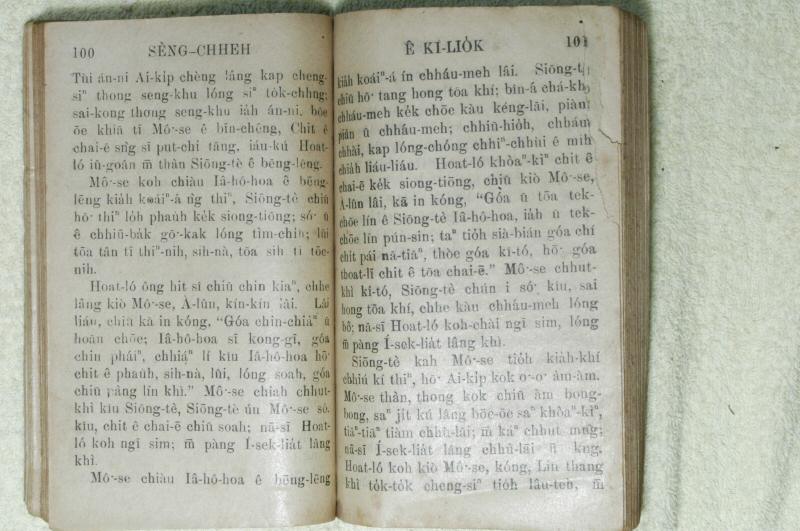 100 SÈNG-CHHEH
Tùi án-ni Ai-ki̍p chèng lâng kap cheng-
siⁿ thong seng-khu lóng siⁿ to̍k-chhng;
sai-kong thong seng-khu ia̍h án-ni, bōe
ōe khiā tī Mô͘-se ê bīn-chêng, Chit ê
chai-ē sǹg sī put-chí tāng, iáu-kú Hoat-
ló iû-goân m̄ thàn Siōng-tè ê bēng-lēng.
Mô͘-se koh chiàu Iâ-hô-hoa ê bēng-
lēng kia̍h koáiⁿ-á ǹg thiⁿ, Siōng-tè chiū
hō͘ thiⁿ lo̍h pha̍uh ke̍k siong-tiōng; só͘ ū
ê chhiū-ba̍k gō͘-kak lóng tìm-chih; lûi
tōa tân tī thiⁿ-nih, sih-nà, tōa sih tī tōe-
nih.
Hoat-ló ông hit sî chiū chin kiaⁿ, chhe
lâng kiò Mô͘-se, A-lûn, kín-kín lâi. Lâi
liáu, chiū kā in kóng, "Góa chin-chiàⁿ ū
hoān chōe; Iâ-hô-hoa sī kong-gī, góa
chin pháiⁿ, chhiáⁿ lí kiû Iâ-hô-hoa hō͘
chit ê pha̍uh, sih-nà, lûi, lóng soah, góa
chiū pàng lín khì." Mô͘-se chiah chhut-
khì kiû Siōng-tè, Siōng-tè ún Mô͘-se só͘
kiû, chit ê chai-ē chiū soah; nā-sī Hoat-
ló koh ngī sim; m̄ pàng Í-sek-lia̍t lâng
khì.
Mô͘-se chiàu Iâ-hô-hoa ê bēng-lēng
Ê KÌ-LIO̍K 101
kia̍h koáiⁿ-á ín chháu-meh lâi. Siōng-tè
chiū hō͘ tang hong tōa khí; bîn-á chá-khí
chháu-meh ke̍k chōe kàu kéng-lāi, piàn
piān ū chháu-meh; chhiū-hio̍h, chháu
chhài, kap lóng-chóng chhiⁿ-chhùi ê mih
chia̍h liáu-liáu. Hoat-ló khòaⁿ-kìⁿ chit ê
chai-ē ke̍k siong-tiōng, chiū kiò Mô͘-se,
A-lûn lâi, kā in kóng, "Góa ū tōa tek-
chōe lín ê Siōng-tè Iâ-hô-hoa, ia̍h ū tek-
chōe lín pún-sin; taⁿ tio̍h sià-bián góa chí
chit pái nā-tiāⁿ, thòe góa kî-tó, hō͘ góa
thoat-lī chit ê tōa chai-ē." Mô͘-se chhut-
khì kî-tó, Siōng-tè chún i só͘ kiû, sai
hong tōa khí, chhe kàu chháu-meh lóng
bô; nā-sī Hoat-ló koh-chài ngī sim, lóng
m̄ pàng Í-sek-lia̍t lâng khì.
Siōng-tè kah Mô͘-se tio̍h kia̍h-khí
chhiú kí thiⁿ, hō͘ Ai-ki̍p kok o͘-o͘ àm-àm.
Mô͘-se thàn, thong kok chiū àm bong-
bong, saⁿ ji̍t kú lâng bōe-ōe saⁿ khòaⁿ-kìⁿ,
tiāⁿ-tiāⁿ tiàm chhù-lāi; m̄ káⁿ chhut mn̂g;
nā-sī Í-sek-lia̍t lâng chhù-lāi ū kng.
Hoat-ló koh kiò Mô͘-se, kóng, Lín thang
khì to̍k-to̍k cheng-siⁿ tio̍h lâu-teh, m̄